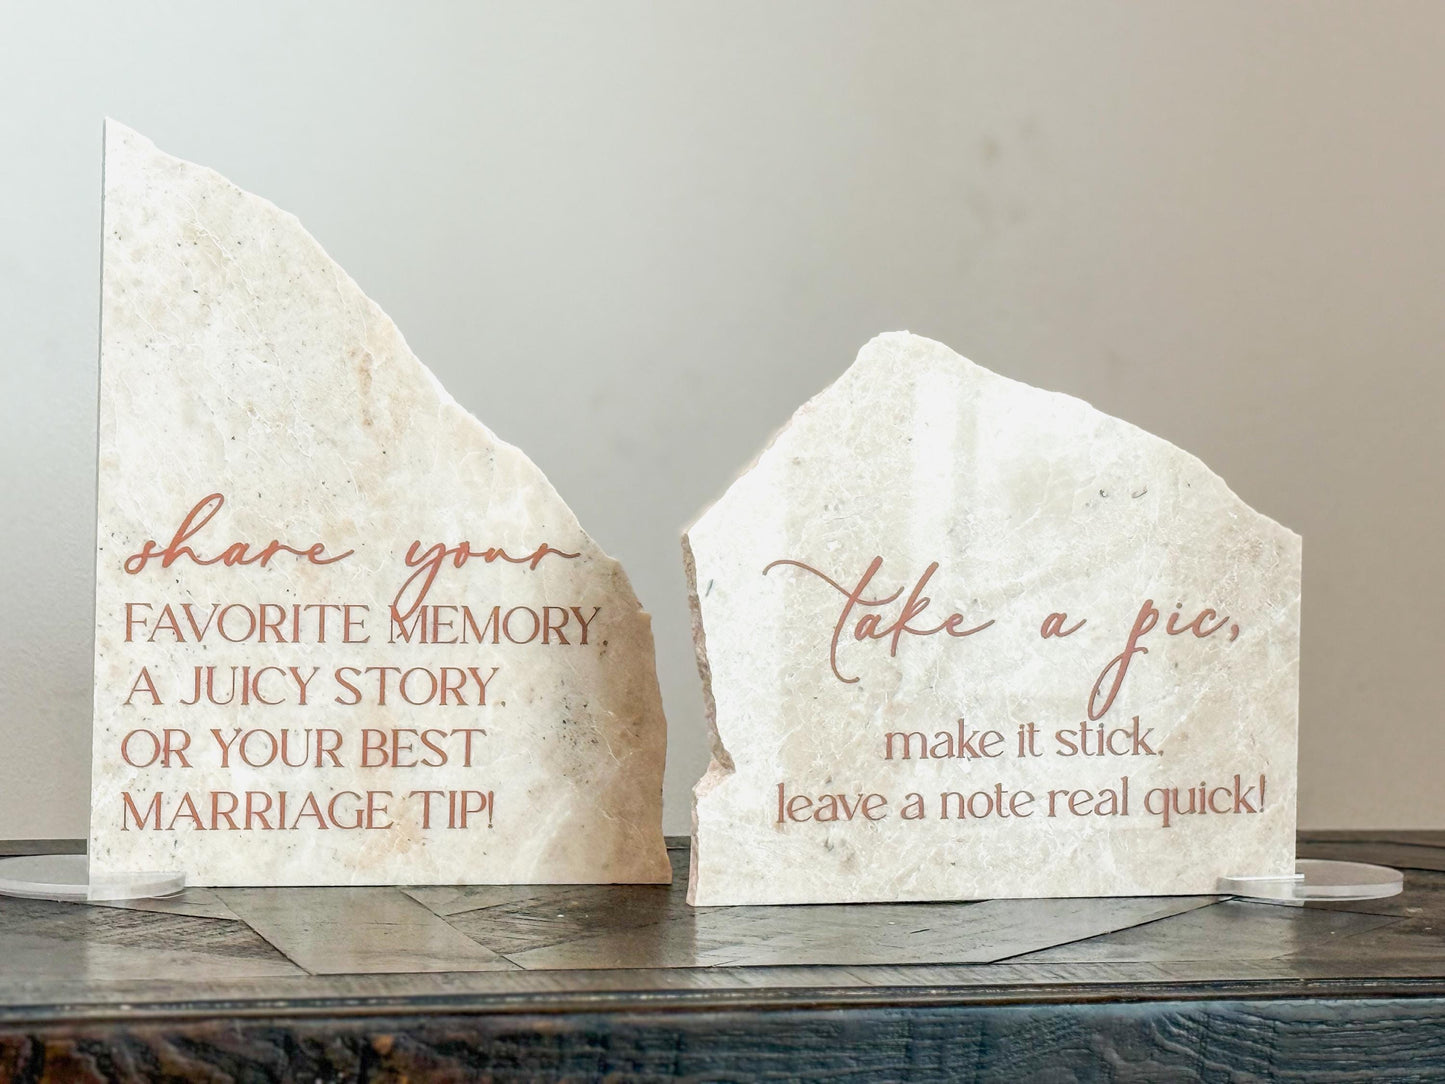 share your
FAVORITE MEMORY,
A JUICY STORY,
OR YOUR BEST
MARRIAGE TIP!
Take a pic,
make it stick,
leave a note real quick!